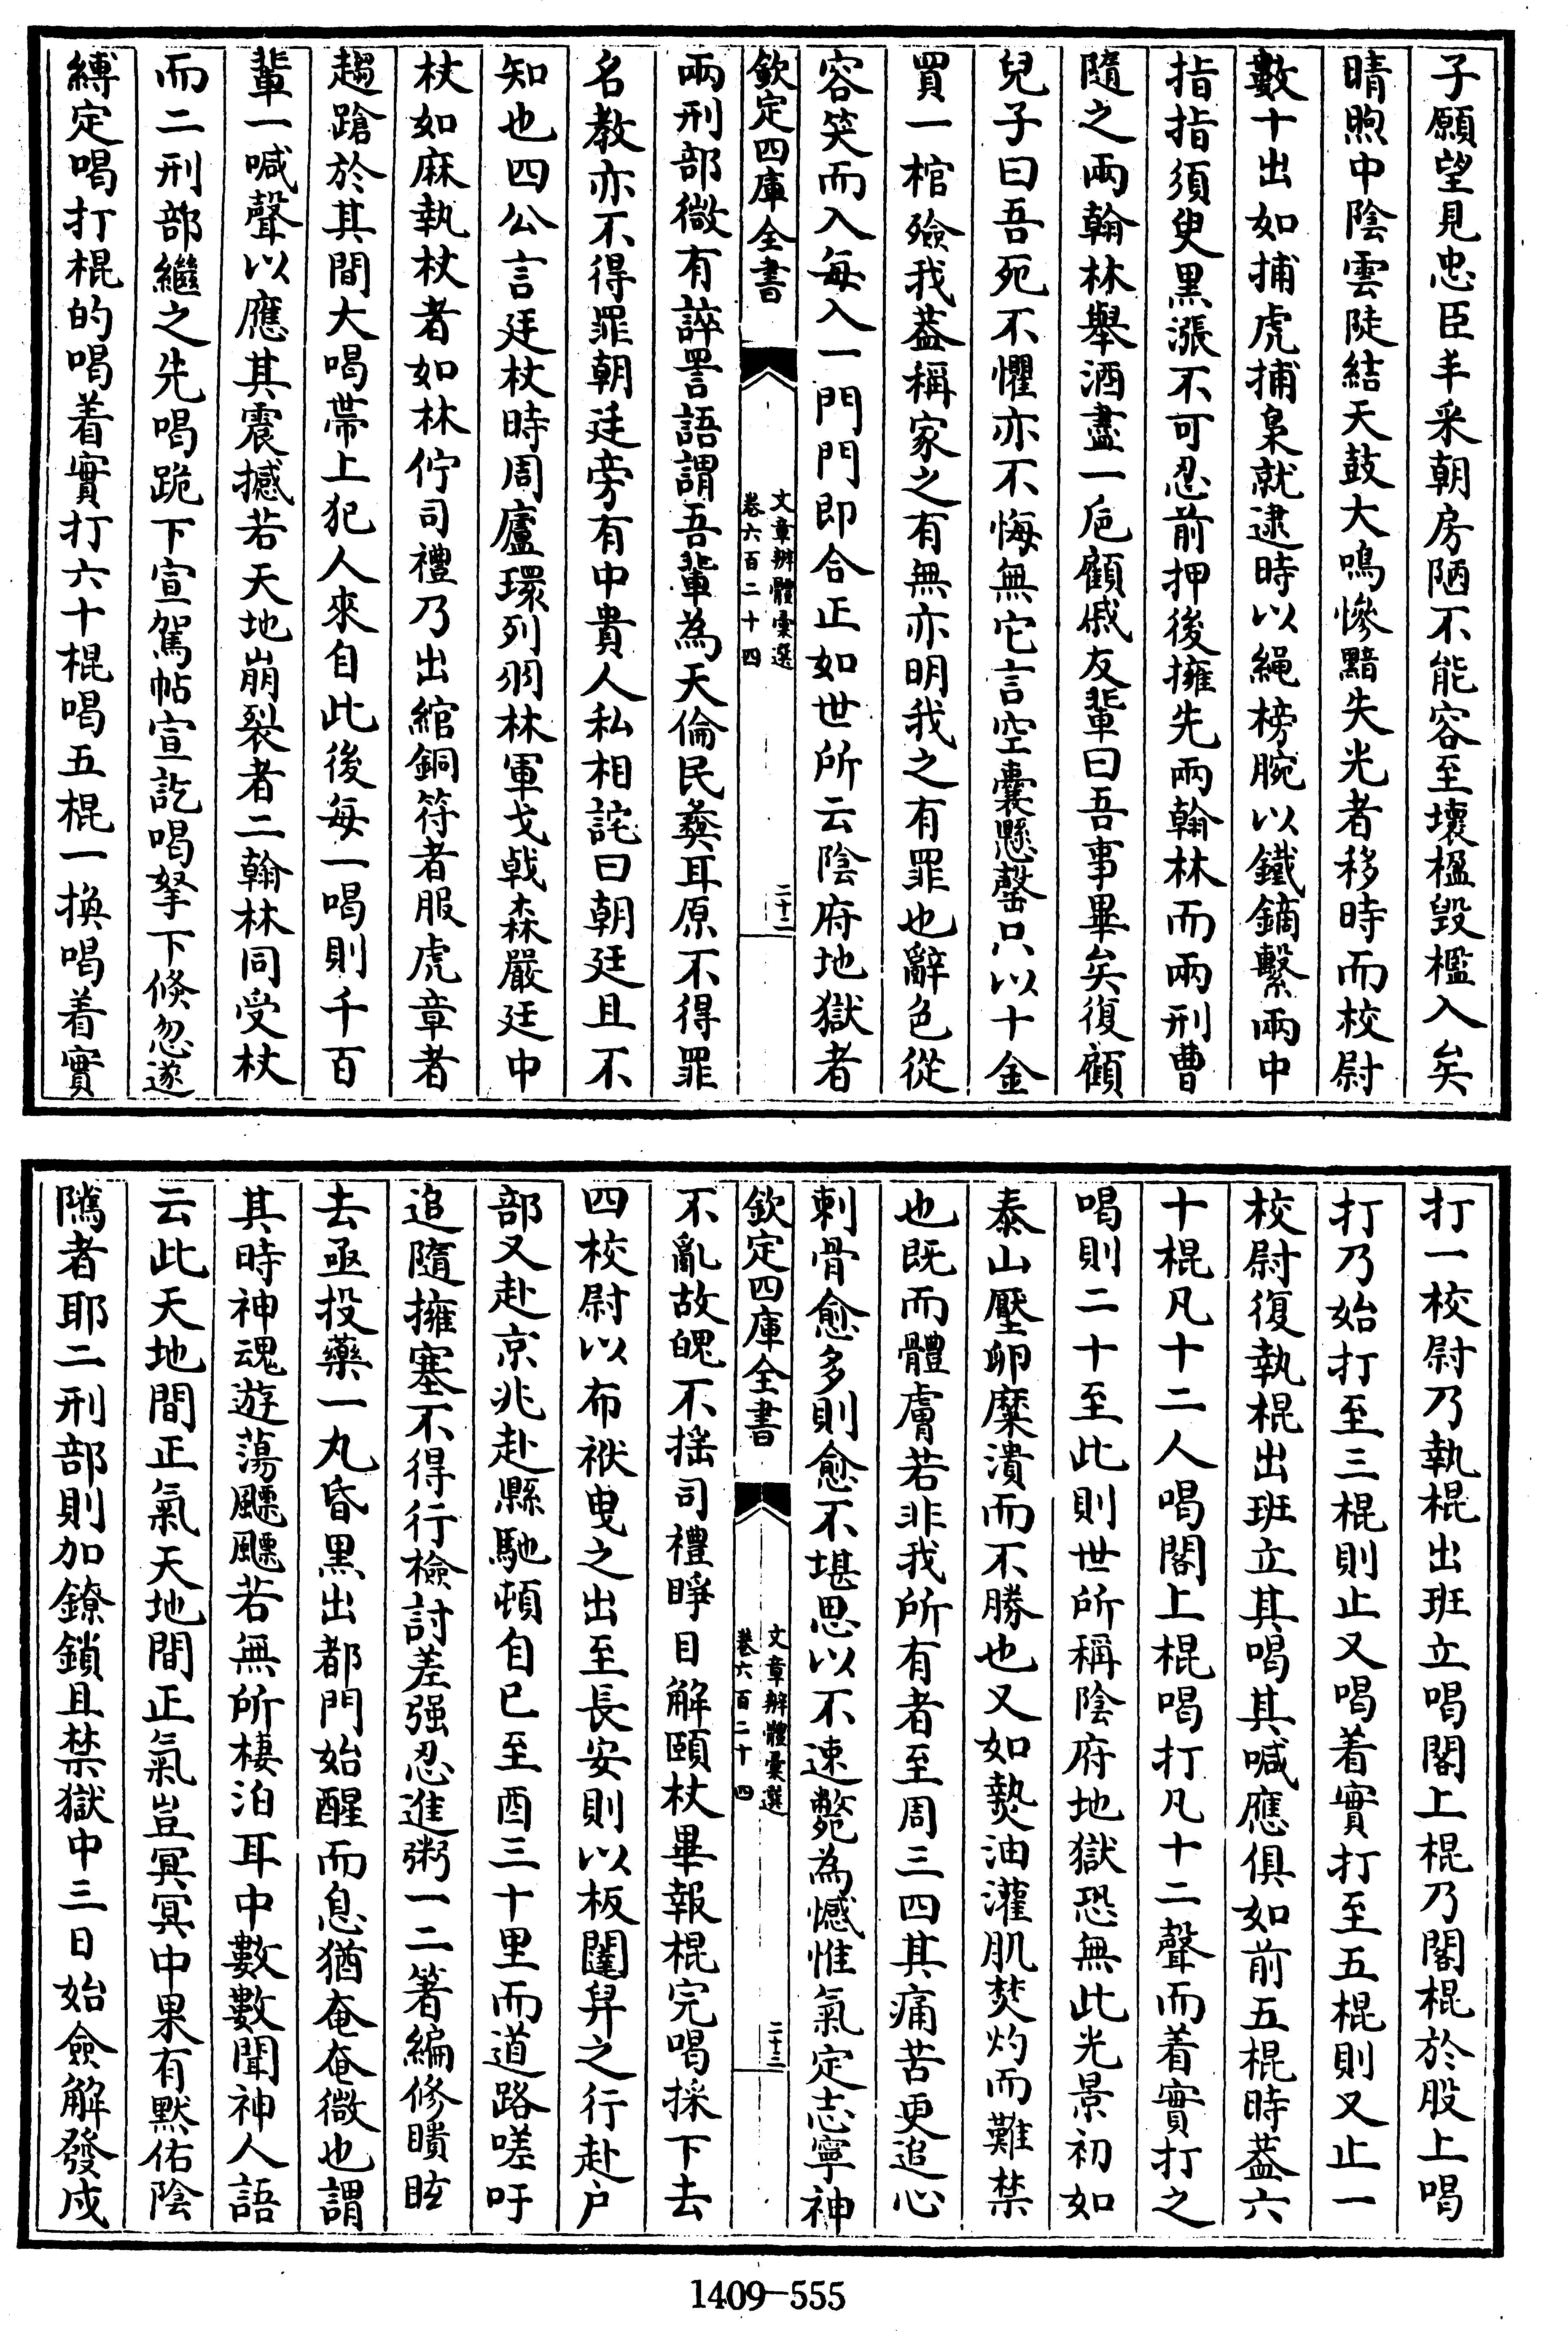 子願望見忠臣丰采朝房陋不能容至壞楹毀檻入矣
晴煦中陰雲陡結天鼓大鳴慘黯失光者移時而校尉
數十出如捕虎捕梟就逮時以繩榜腕以鐵鏑繫兩中
指指須臾黑漲不可忍前押後擁先兩翰林而兩刑曹
隨之兩翰林舉酒盡一巵顧戚友輩曰吾事畢矣復顧
兒子曰吾死不懼亦不悔無它言空囊懸罄只以十金
買一棺殮我葢稱家之有無亦明我之有罪也辭色從
容笑而入每入一門門即合正如世所云陰府地獄者
欽定四庫全書
文章辨體彙選
卷六百二十四
二十二
兩刑部微有誶詈語謂吾輩為天倫民彝耳原不得罪
名教亦不得罪朝廷旁有中貴人私相詫曰朝廷且不
知也四公言廷杖時周廬環列羽林軍戈戟森嚴廷中
杖如麻執杖者如林佇司禮乃出綰銅符者服虎章者
趨蹌於其間大喝帶上犯人來自此後每一喝則千百
輩一喊聲以應其震撼若天地崩裂者二翰林同受杖
而二刑部繼之先喝跪下宣駕帖宣訖喝拏下倐忽遂
縛定喝打棍的喝着實打六十棍喝五棍一換喝着實
打一校尉乃執棍出班立喝閣上棍乃閣棍於股上喝
打乃始打至三棍則止又喝着實打至五棍則又止一
校尉復執棍出班立其喝其喊應俱如前五棍時葢六
十棍凡十二人喝閣上棍喝打凡十二聲而着實打之
喝則二十至此則世所稱陰府地獄恐無此光景初如
泰山壓卵糜潰而不勝也又如熱油灌肌焚灼而難禁
也既而體膚若非我所有者至周三四其痛苦更追心
刺骨愈多則愈不堪思以不速斃為憾惟氣定志寧神
欽定四庫全書
文章辨體彙選
卷六百二十四
二十三
不亂故魄不揺司禮睜目解頤杖畢報棍完喝採下去
四校尉以布袱曳之出至長安則以板闥舁之行赴戶
部又赴京兆赴縣馳頓自巳至酉三十里而道路嗟吁
追隨擁塞不得行檢討差强忍進粥一二箸編修瞶眩
去亟投藥一丸昏黑出都門始醒而息猶奄奄微也謂
其時神魂遊蕩飃飃若無所棲泊耳中數數聞神人語
云此天地間正氣天地間正氣豈冥冥中果有默佑陰
隲者耶二刑部則加鐐鎖且禁獄中三日始僉解發戍
1409—555